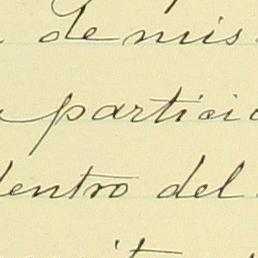 de mis
partici
dentro del